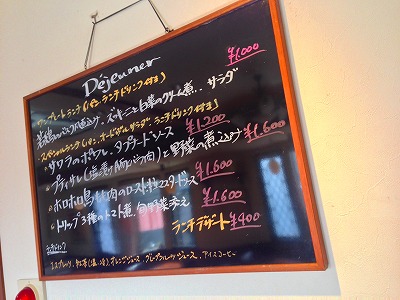 Déjeuner
ワンプレートランチ(パン,ランチドリンク付き)
¥1,000
若鶏のバスク風煮込み.. ズッキーニと白菜のクリーム煮.. サラダ
スペシャルランチ(パン,オードヴル,サラダ,ランチドリンク付き)
・サワラのポワレ,タプナードソース ¥1,200
・プティサレ(塩漬け豚バラ肉)と野菜の煮込み ¥1,600
・ホロホロ鳥モモ肉のロースト 粒マスタードソース ¥1,600
・トリップ3種のトマト煮,旬野菜添え ¥1,600
ランチデザート ¥400
ランチドリンク
エスプレッソ, 紅茶(温・冷), オレンジジュース, グレープフルーツジュース, アイスコーヒー